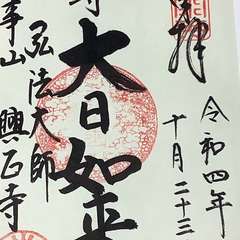 拝
令和四年
十月二十三
大日如来
弘法大師
事山
興正寺